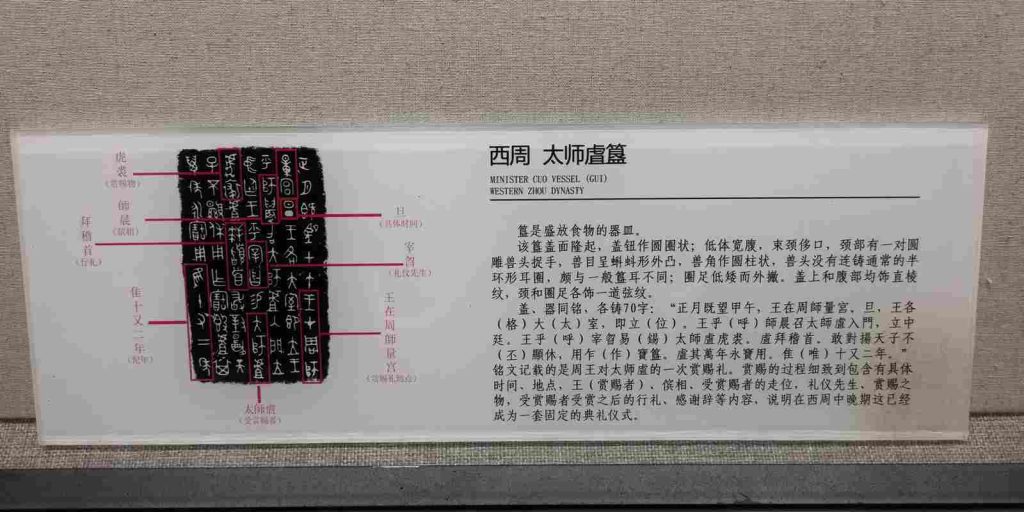 西周 太师虘簋
MINISTER CUO VESSEL (GUI)
WESTERN ZHOU DYNASTY
簋是盛放食物的器皿。
该簋盖面隆起，盖钮作圆圈状；低体宽腹，束颈侈口，颈部有一对圆
雕兽头捉手，兽目呈蝌蚪形外凸，兽角作圆柱状，兽头没有连铸通常的半
环形耳圈，颇与一般簋耳不同；圈足低矮而外撇。盖上和腹部均饰直棱
纹，颈和圈足各饰一道弦纹。
盖、器同铭，各铸70字：“正月既望甲午，王在周師量宮。旦，王各
（格）大（太）室，即立（位）。王乎（呼）師晨召太師虘入門，立中
廷。王乎（呼）宰曶易（錫）太師虘虎裘。虘拜稽首。敢對揚天子不
（丕）顯休，用乍（作）寶簋。虘其萬年永寶用。隹（唯）十又二年。”
铭文记载的是周王对太师虘的一次赏赐礼。赏赐的过程细致到包含有具体
时间、地点，王（赏赐者）、傧相、受赏赐者的走位，礼仪先生、赏赐之
物，受赏赐者受赏之后的行礼、感谢辞等内容，说明在西周中晚期这已经
成为一套固定的典礼仪式。
虎裘
（赏赐物）
師晨
（傧相）
拜稽首
（行礼）
隹十又二年
（纪年）
太師虘
（受赏赐者）
旦
（具体时间）
宰曶
（礼仪先生）
王在周師量宮
（赏赐礼地点）